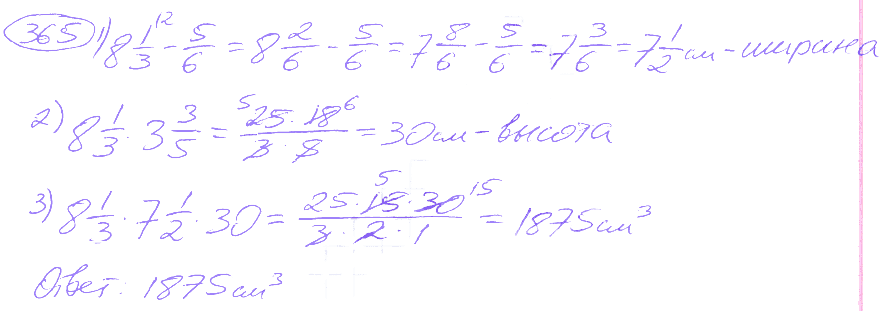 365 1) 8 1/3 ^2 - 5/6 = 8 2/6 - 5/6 = 7 8/6 - 5/6 = 7 3/6 = 7 1/2 см - ширина
2) 8 1/3 · 3 3/5 = ^5 25 · 18 ^6 / 3 · 5 = 30 см - высота
3) 8 1/3 · 7 1/2 · 30 = 25 · 15 ^5 · 30 ^15 / 3 · 2 · 1 = 1875 см³
Ответ: 1875 см³